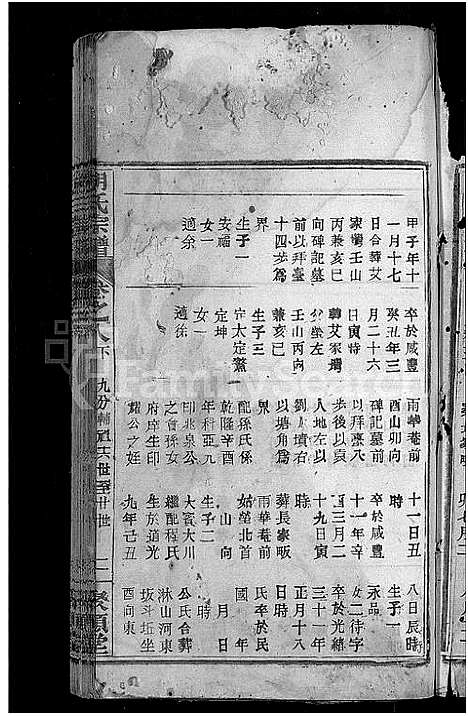 甲子年十
一月十七
日合葬艾
家灣壬山
丙兼亥巳
向碑記墓
前以拜臺
十四步為
界
生子一
安福
女一
適余
卒於咸豐
癸丑年三
月二十六
日寅時
葬艾家灣
公塋左
壬山丙向
兼亥巳
生子三
守太定鰲
定坤
女一
適徐
雨華菴前
酉山卯向
碑記墓前
以拜臺八
步後以袁
人地左以
劉人墳右
以塘角為
界
配孫氏係
乾隆辛酉
年科亞元
印兆泉公
之曾孫女
府庠生印
耀公之姪
十一日丑
時
卒於咸豐
十一年辛
酉三月二
十九日寅
時
葬長家畈
雨華菴前
如塋北首
山向
生子二
大賓大川
繼配程氏
生於道光
九年己丑
八日辰時
生子一
永品
女二待字
卒於光緒
三十一年
正月十八
氏卒於民
國 年
月 日
時
公氏合葬
沐山河東
坂斗坵坐
酉向東
氏宗譜
卷之八下
九分輔
世至廿世
FamilySearch